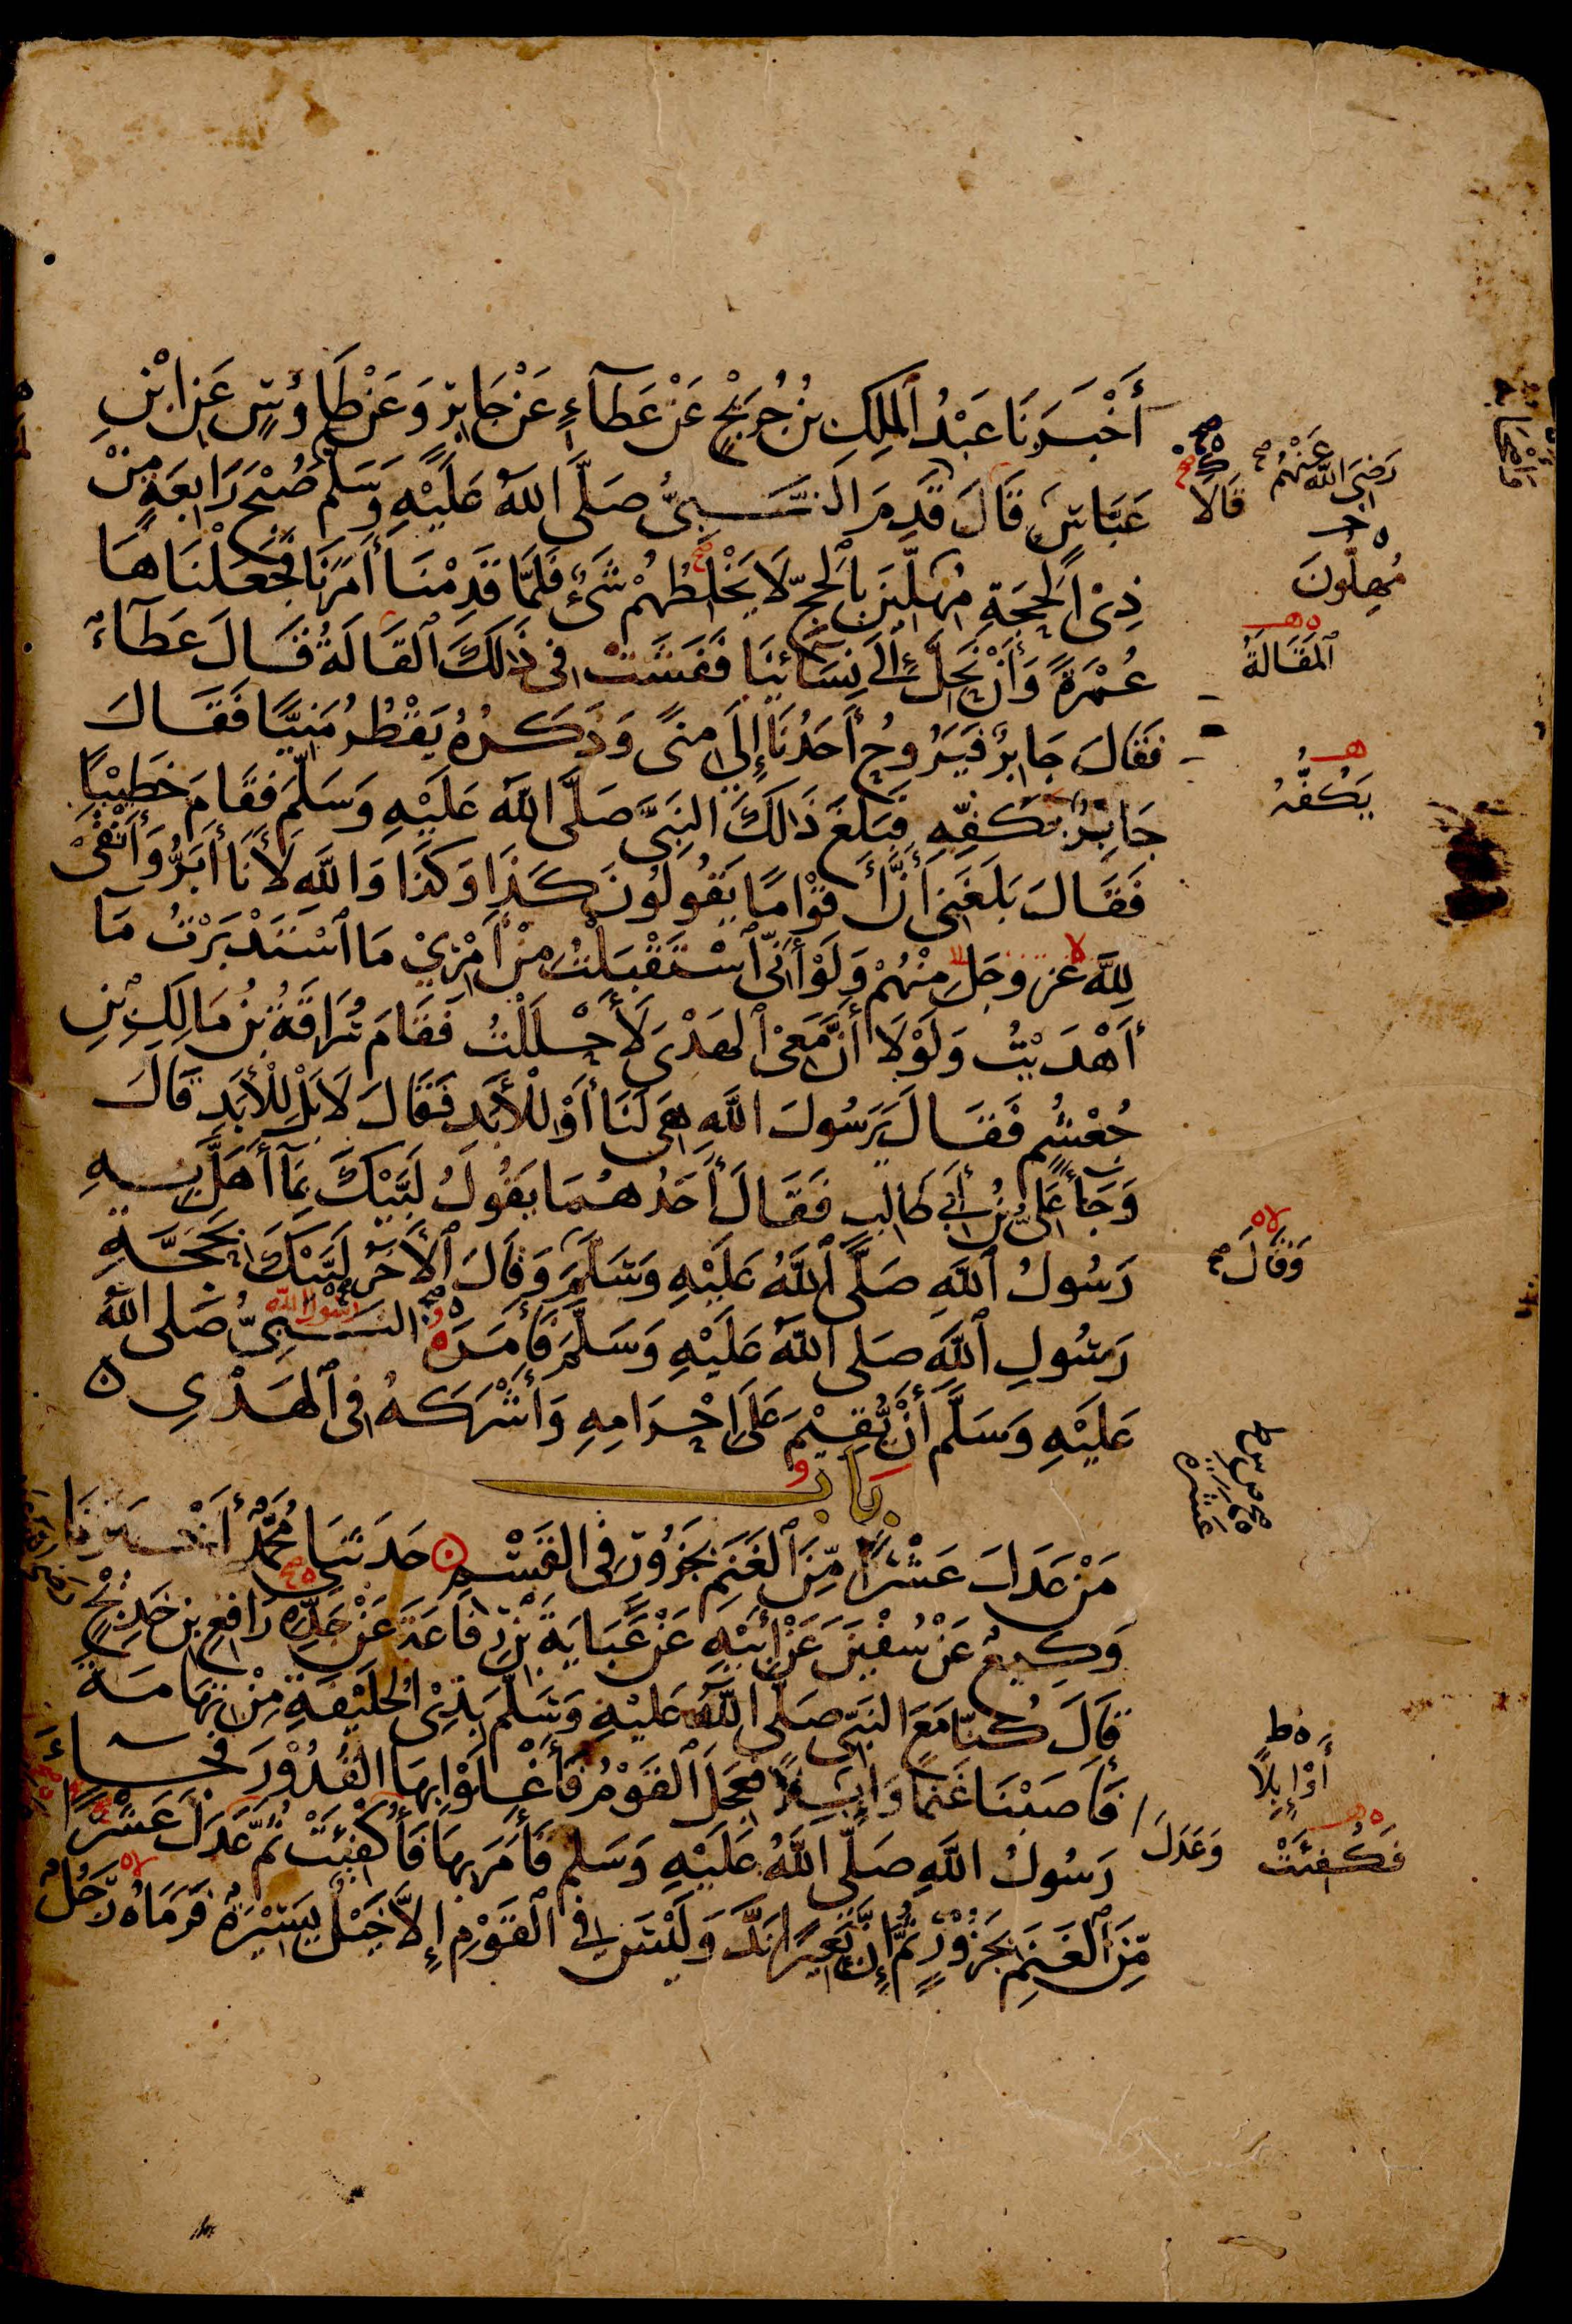 أَخْبَرَنَا عَبْدُ ٱلْمَلِكِ بْنُ جُرَيْجٍ عَنْ عَطَآءٍ عَنْ جَابِرٍ وَعَنْ طَاوُسٍ عَنِ ابْنِ
عَبَّاسٍ قَالَ قَدِمَ النَّبِيُّ صَلَّى اللَّهُ عَلَيْهِ وَسَلَّمَ صُبْحَ رَابِعَةٍ مِنْ
ذِي ٱلْحِجَّةِ مُهِلِّينَ بِٱلْحَجِّ لَا يَخْلِطُهُمْ شَيْءٌ فَلَمَّا قَدِمْنَا أَمَرَنَا فَجَعَلْنَاهَا
عُمْرَةً وَأَنْ نَحِلَّ إِلَى نِسَائِنَا فَفَشَتْ فِي ذَلِكَ ٱلْقَالَةُ قَالَ عَطَآءٌ
فَقَالَ جَابِرٌ فَيَرُوحُ أَحَدُنَا إِلَى مِنًى وَذَكَرُهُ يَقْطُرُ مَنِيًّا فَقَالَ
جَابِرٌ بِكَفِّهِ فَبَلَغَ ذَلِكَ النَّبِيَّ صَلَّى اللَّهُ عَلَيْهِ وَسَلَّمَ فَقَامَ خَطِيبًا
فَقَالَ بَلَغَنِي أَنَّ أَقْوَامًا يَقُولُونَ كَذَا وَكَذَا وَاللَّهِ لَأَنَا أَبَرُّ وَأَتْقَى
لِلَّهِ عز وجل مِنْهُمْ وَلَوْ أَنِّي ٱسْتَقْبَلْتُ مِنْ أَمْرِي مَا ٱسْتَدْبَرْتُ مَا
أَهْدَيْتُ وَلَوْلَا أَنَّ مَعِيَ ٱلْهَدْيَ لَأَحْلَلْتُ فَقَامَ سُرَاقَةُ بْنُ مَالِكِ بْنِ
جُعْشُمٍ فَقَالَ يَرَسُولَ اللَّهِ هِيَ لَنَا أَوْ لِلْأَبَدِ فَقَالَ لَا بَلْ لِلْأَبَدِ قَالَ
وَجَاءَ عَلِيُّ بْنُ أَبِي طَالِبٍ فَقَالَ أَحَدُهُمَا يَقُولُ لَبَّيْكَ بِمَا أَهَلَّ بِهِ
رَسُولُ ٱللَّهِ صَلَّى ٱللَّهُ عَلَيْهِ وَسَلَّمَ وَقَالَ ٱلْآخَرُ لَبَّيْكَ بِحَجَّةِ
رَسُولِ ٱللَّهِ صَلَّى اللَّهُ عَلَيْهِ وَسَلَّمَ فَأَمَرَ النَّبِيُّ صَلَّى اللَّهُ
عَلَيْهِ وَسَلَّمَ أَنْ يُقِيمَ عَلَى إِحْرَامِهِ وَأَشْرَكَهُ فِي ٱلْهَدْيِ
بَابُ
مَنْ عَدَلَ عَشْرًا مِّنَ ٱلْغَنَمِ بِجَزُورٍ فِي الْقَسْمِ حَدَّثَنَا مُحَمَّدٌ أَخْبَرَنَا
وَكِيعٌ عَنْ سُفْيَنَ عَنْ أَبِيهِ عَنْ عَبَايَةَ بْنِ رِفَاعَةَ عَنْ جَدِّهِ رَافِعِ بْنِ خَدِيجٍ
قَالَ كُنَّا مَعَ النَّبِيِّ صَلَّى اللَّهُ عَلَيْهِ وَسَلَّمَ بِذِي الْحُلَيْفَةِ مِنْ تِهَامَةَ
فَأَصَبْنَا غَنَمًا وَإِبِلًا فَعَجِلَ ٱلْقَوْمُ فَأَغْلَوْا بِهَا الْقُدُورَ فَجَاءَ
رَسُولُ اللَّهِ صَلَّى اللَّهُ عَلَيْهِ وَسَلَّمَ فَأَمَرَ بِهَا فَأُكْفِئَتْ ثُمَّ عَدَلَ عَشْرًا
مِّنَ ٱلْغَنَمِ بِجَزُورٍ ثُمَّ إِنَّ بَعِيرًا نَدَّ وَلَيْسَ فِي ٱلْقَوْمِ إِلَّا خَيْلٌ يَسِيرَةٌ فَرَمَاهُ رَجُلٌ
رَضِيَ اللَّهُ عَنْهُمْ
قَالَا
مُهِلُّونَ
ٱلْمَقَالَةُ
يَكُفُّهُ
رسول الله
وَقَالَ
عَشَرَةً
أَوْ إِبِلًا
وَعَدَلَ
فَكُفِئَتْ